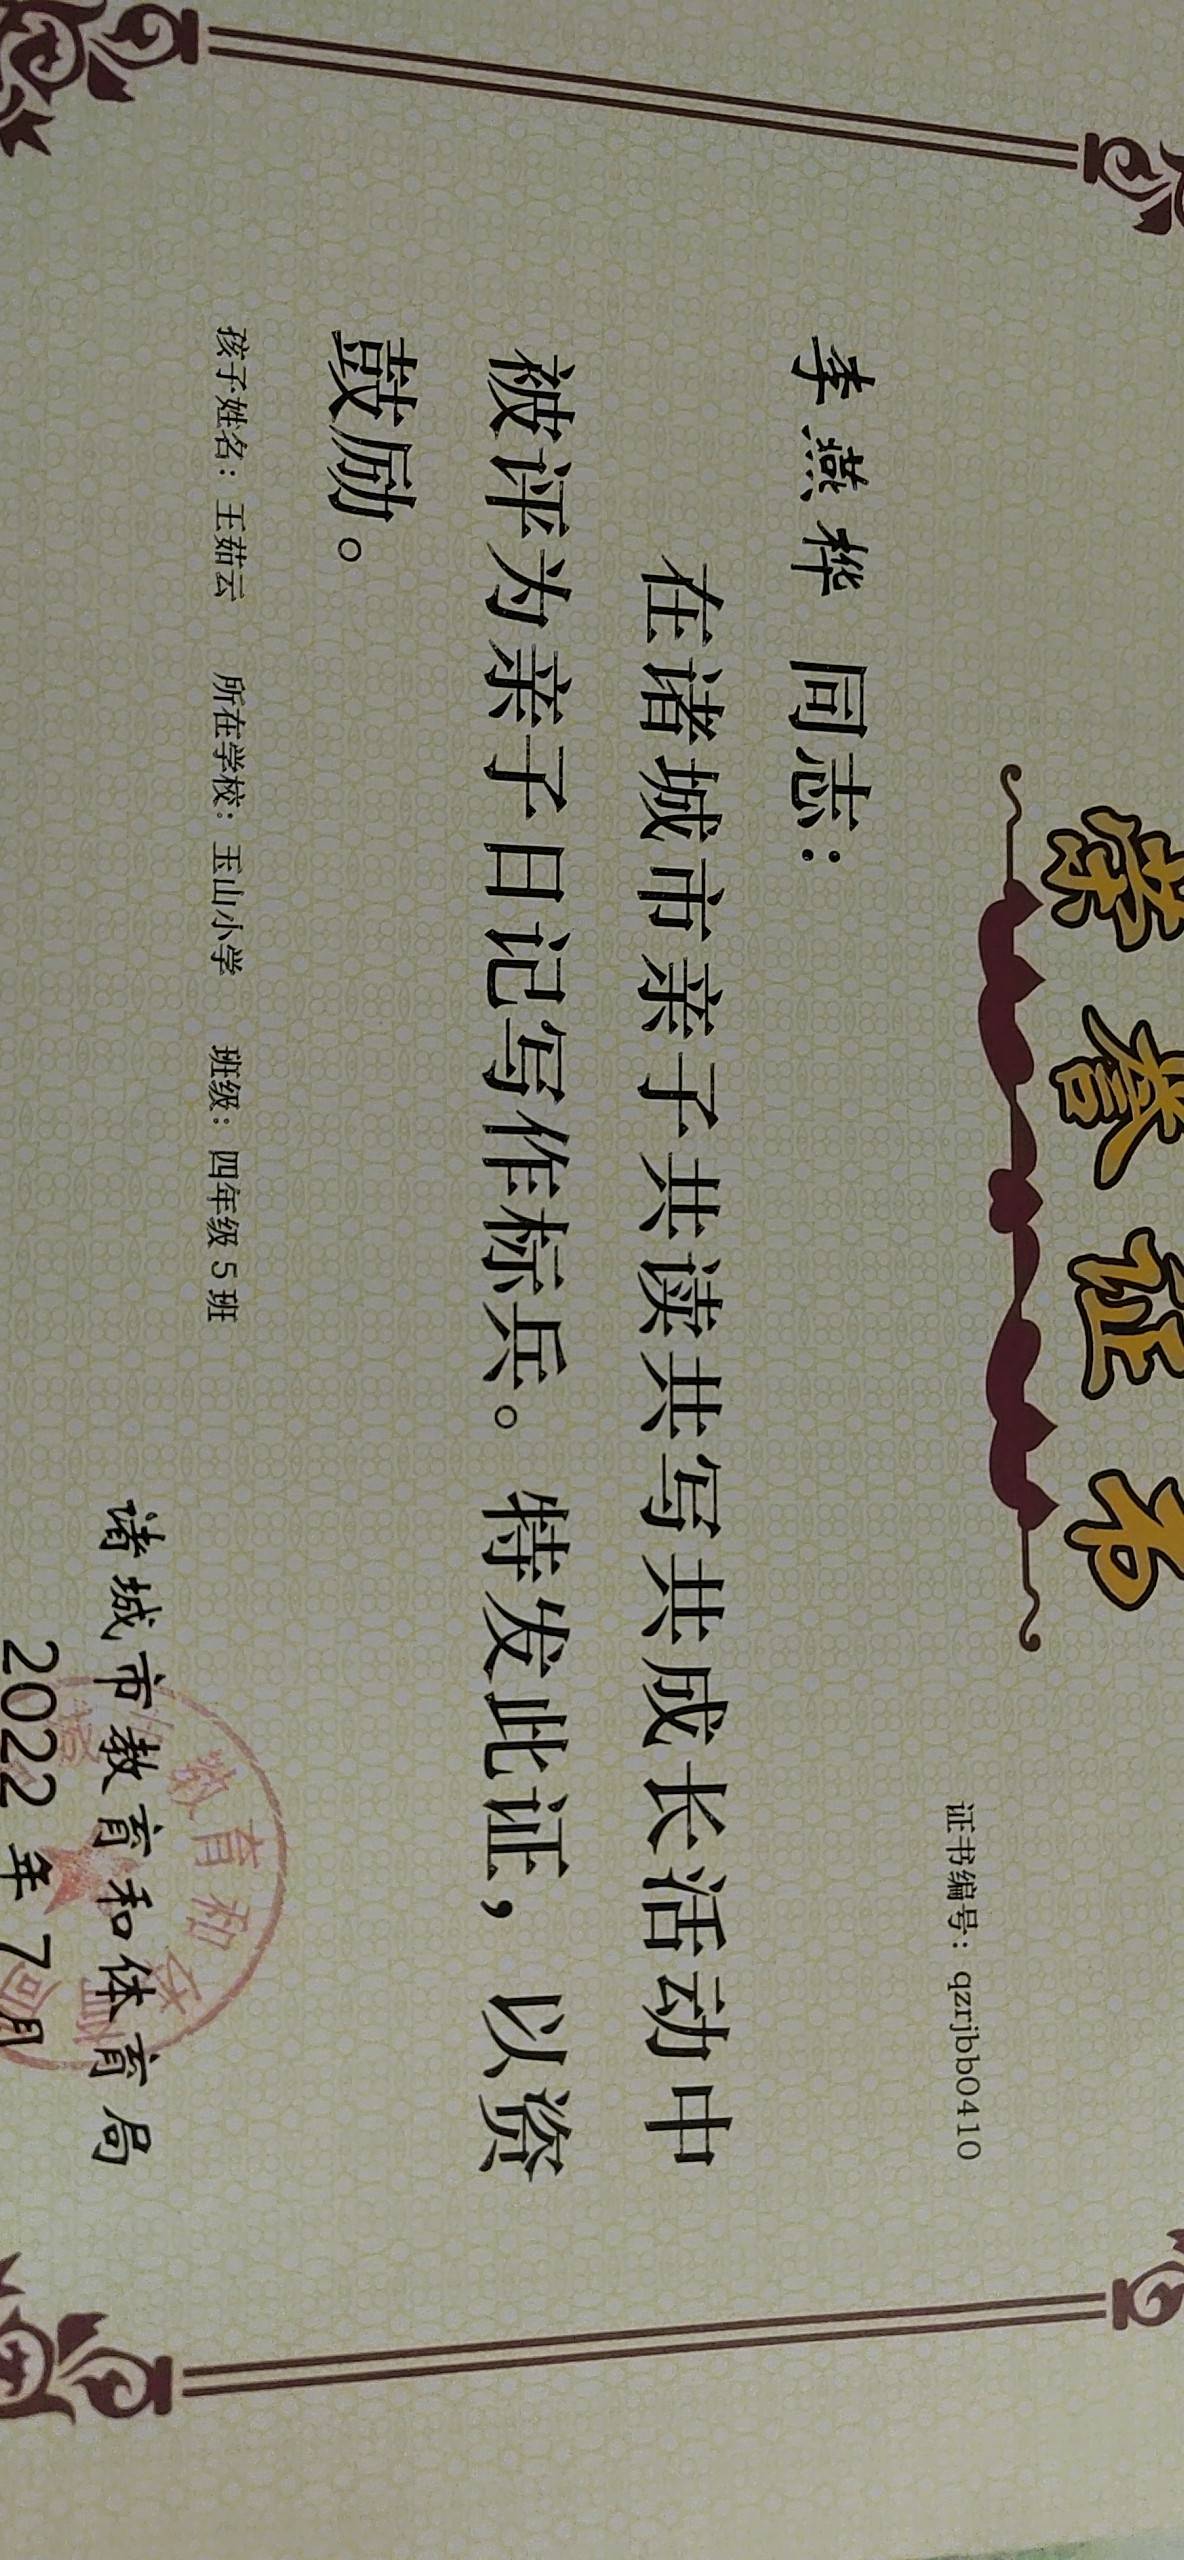 荣誉证书
证书编号：qzrjbb0410
李燕桦 同志：
在诸城市亲子共读共写共成长活动中
被评为亲子日记写作标兵。特发此证，以资
鼓励。
孩子姓名：王茹云 所在学校：玉山小学 班级：四年级 5 班
诸城市教育和体育局
2022 年 7月
教育和体